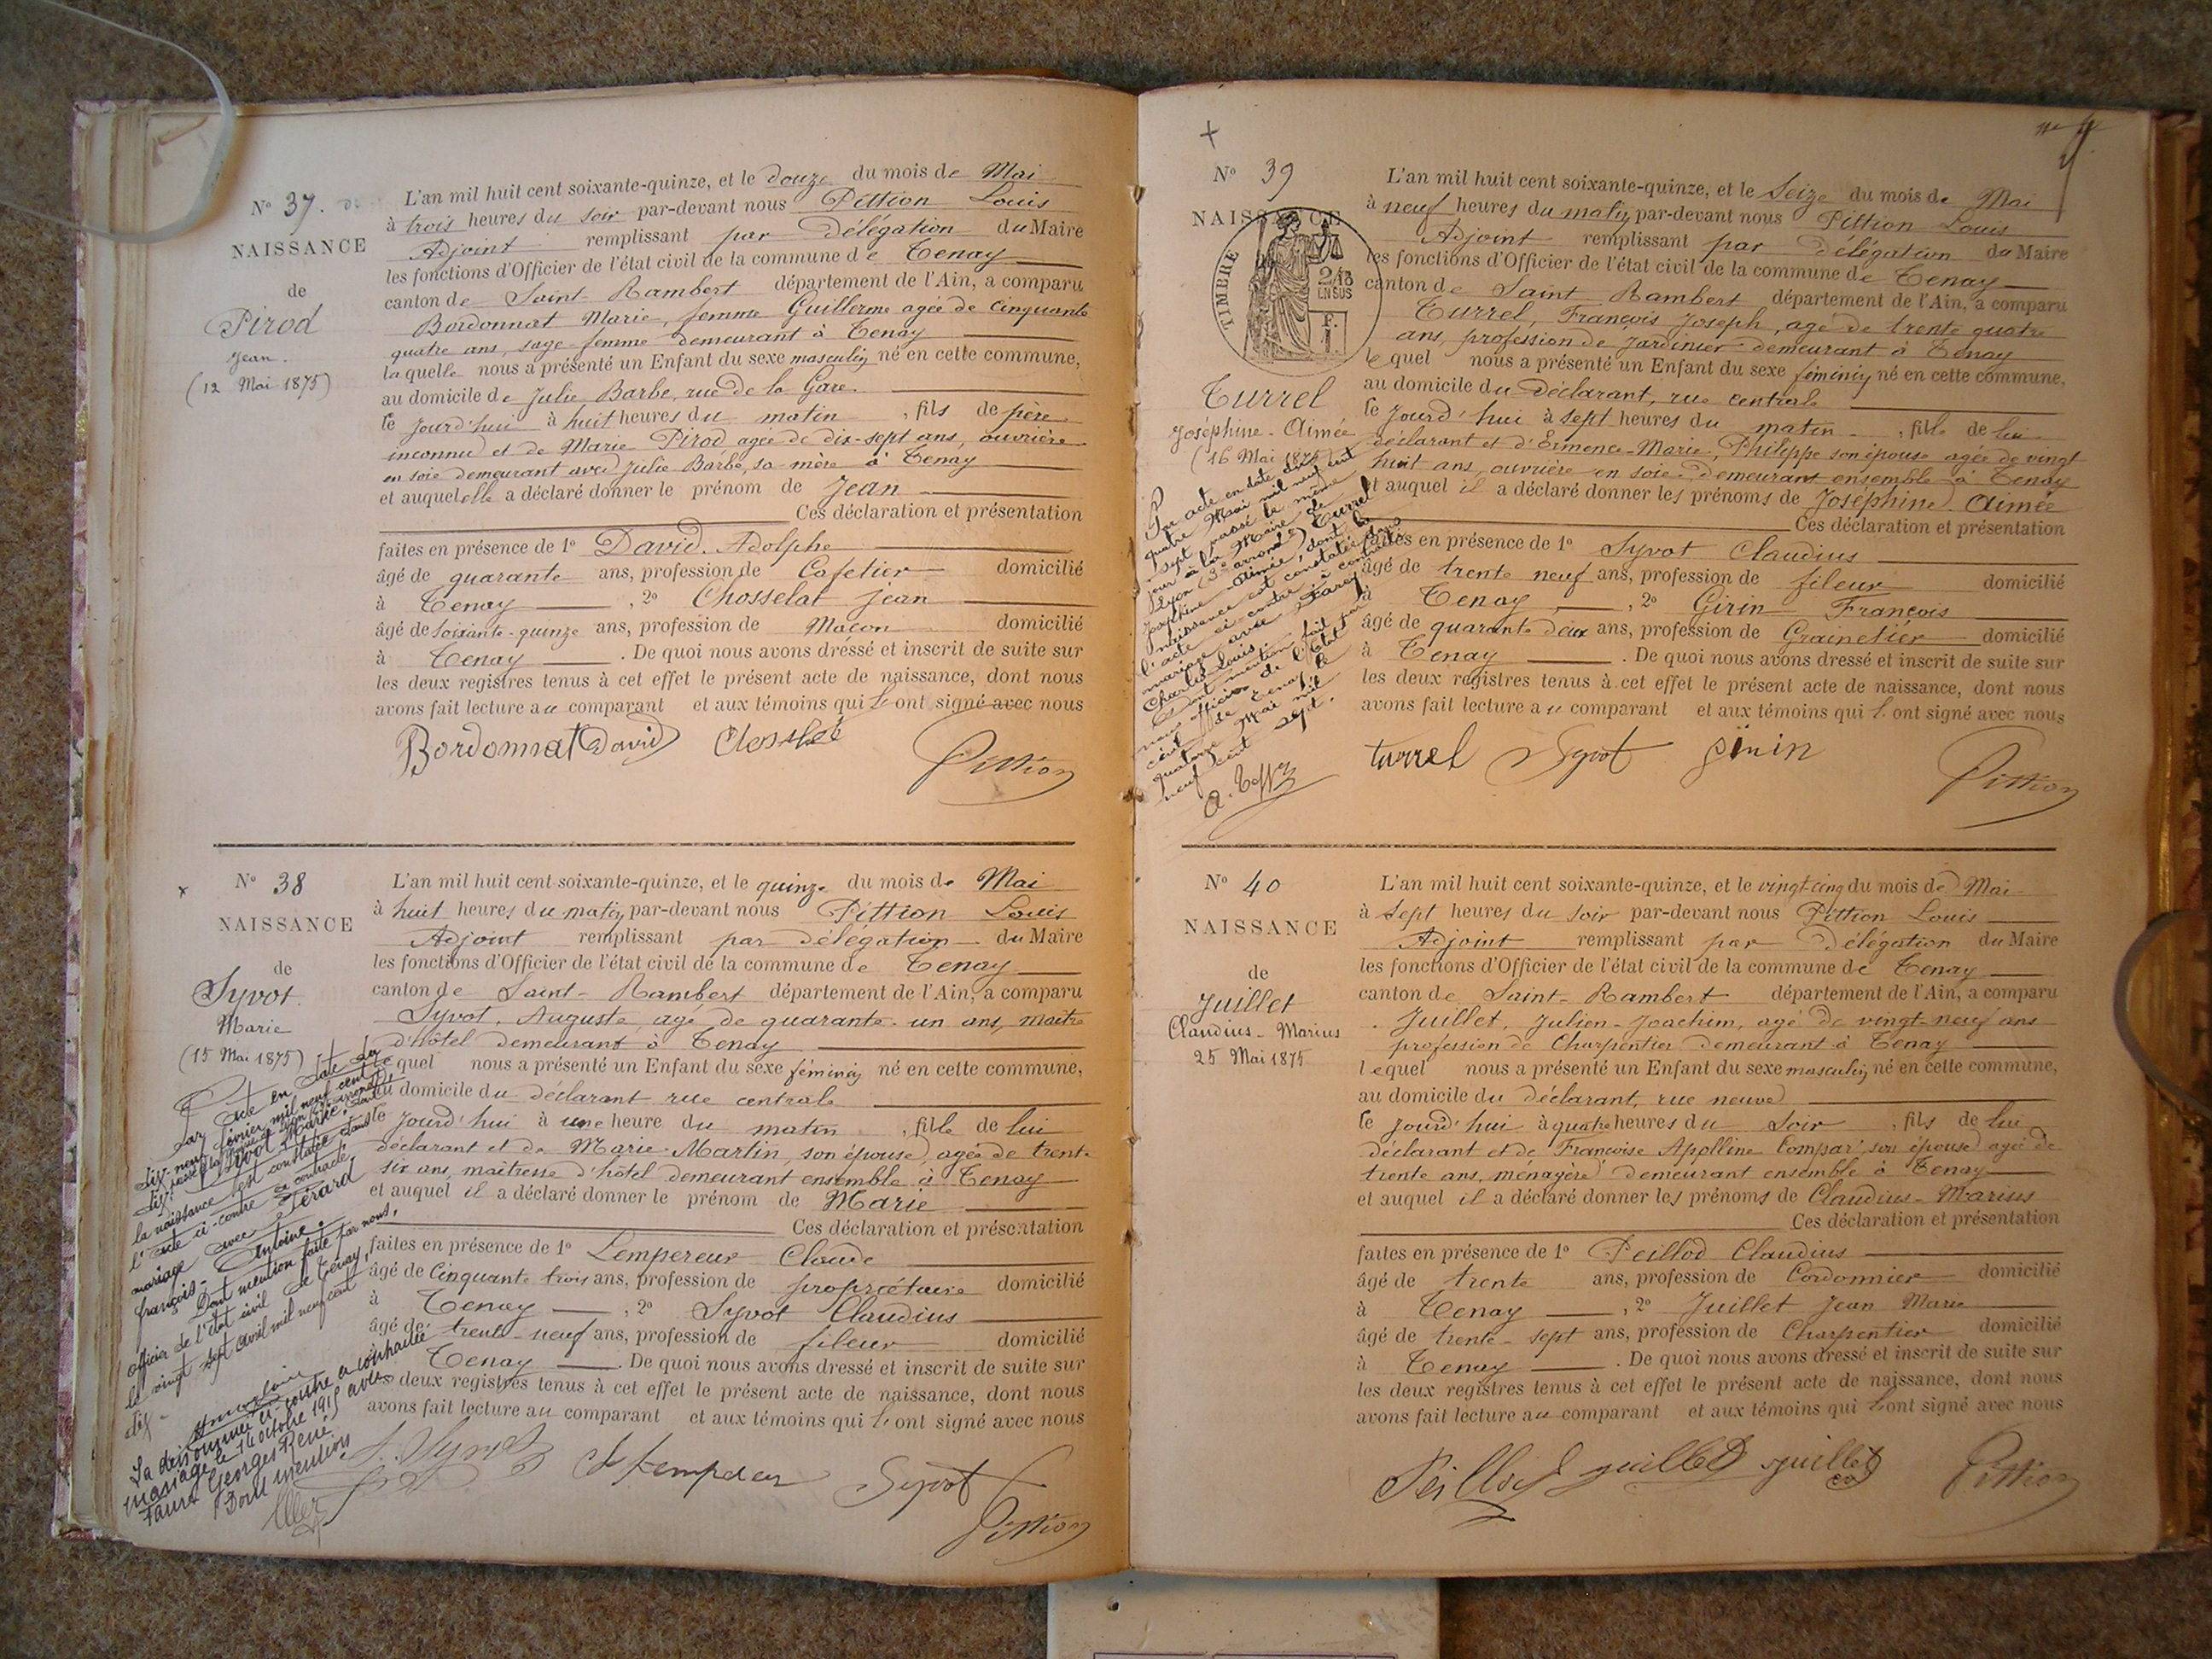 N° 37.
NAISSANCE
de
Pirod
Jean.
(12 Mai 1875)
L'an mil huit cent soixante-quinze, et le douze du mois de Mai
à trois heures du soir par-devant nous Pittion Louis
Adjoint remplissant par délégation du Maire
les fonctions d'Officier de l'état civil de la commune de Tenay
canton de Saint-Rambert département de l'Ain, a comparu
Bordonnat Marie, femme Guillerme agée de cinquante
quatre ans, sage-femme demeurant à Tenay
laquelle nous a présenté un Enfant du sexe masculin né en cette commune,
au domicile de Julie Barbe, rue de la Gare.
le jourd'hui à huit heures du matin, fils de père
inconnu et de Marie Pirod agée de dix-sept ans, ouvrière
en soie demeurant avec Julie Barbe, sa mère à Tenay
et auquel elle a déclaré donner le prénom de Jean
Ces déclaration et présentation
faites en présence de 1° David Adolphe
âgé de quarante ans, profession de Cafetier domicilié
à Tenay, 2° Chosselat Jean
âgé de soixante-quinze ans, profession de Maçon domicilié
à Tenay. De quoi nous avons dressé et inscrit de suite sur
les deux registres tenus à cet effet le présent acte de naissance, dont nous
avons fait lecture au comparant et aux témoins qui l'ont signé avec nous
Bordonnat David Pittion
N° 38
NAISSANCE
de
Syvot
Marie
(15 Mai 1875)
Par acte en date du
dix-neuf février mil neuf cent
dix, passé à la
Syvot Marie, dont
la naissance est constatée dans
l'acte ci-contre a contracté
mariage avec Férard
françois-Antoine.
Dont mention faite par nous,
officier de l'état civil de Tenay,
le vingt sept avril mil neuf cent
dix-
La dénommée ci-contre a contracté
mariage le 14 octobre 1915 avec
Faure Georges René
Dont mention
L'an mil huit cent soixante-quinze, et le quinze du mois de Mai
à huit heures du matin par-devant nous Pittion Louis
Adjoint remplissant par délégation du Maire
les fonctions d'Officier de l'état civil de la commune de Tenay
canton de Saint-Rambert département de l'Ain, a comparu
Syvot, Auguste, agé de quarante-un ans, maître
d'hôtel demeurant à Tenay
lequel nous a présenté un Enfant du sexe féminin né en cette commune,
au domicile du déclarant rue centrale
le jourd'hui à une heure du matin, fille de lui
déclarant et de Marie Martin, son épouse, agée de trente-
six ans, maîtresse d'hôtel demeurant ensemble à Tenay
et auquel il a déclaré donner le prénom de Marie
Ces déclaration et présentation
faites en présence de 1° Lempereur Claude
âgé de cinquante trois ans, profession de propriétaire domicilié
à Tenay, 2° Syvot Claudius
âgé de trente-neuf ans, profession de fileur domicilié
Tenay. De quoi nous avons dressé et inscrit de suite sur
les deux registres tenus à cet effet le présent acte de naissance, dont nous
avons fait lecture au comparant et aux témoins qui l'ont signé avec nous
Syvot
Pittion
N° 39
NAISSANCE
TIMBRE
Turrel
Joséphine-Aimée
(16 Mai 1875)
Par acte en date du
quatre Mai mil neuf cent
sept passé le même
jour à la Mairie de
Lyon (3e arrond.) Turrel
Joséphine Aimée, dont la
naissance est constatée dans
l'acte ci-contre a contracté
mariage avec Farey
Charles Louis.
Dont mention fait par
nous officier de l'Etat
civil de Tenay le
quatorze Mai mil
neuf cent sept.
L'an mil huit cent soixante-quinze, et le seize du mois de Mai
à neuf heures du matin par-devant nous Pittion Louis
Adjoint remplissant par délégation du Maire
les fonctions d'Officier de l'état civil de la commune de Tenay
canton de Saint Rambert département de l'Ain, a comparu
Turrel, François Joseph, agé de trente quatre
ans, profession de jardinier demeurant à Tenay
lequel nous a présenté un Enfant du sexe féminin né en cette commune,
au domicile du déclarant, rue centrale
le jourd'hui à sept heures du matin, fille de lui
déclarant et d'Ermence-Marie, Philippe son épouse agée de vingt
huit ans, ouvrière en soie demeurant ensemble à Tenay
et auquel il a déclaré donner les prénoms de Joséphine Aimée
Ces déclaration et présentation
faites en présence de 1° Syvot Claudius
âgé de trente neuf ans, profession de fileur domicilié
à Tenay, 2° Girin François
âgé de quarante deux ans, profession de Grainetier domicilié
à Tenay. De quoi nous avons dressé et inscrit de suite sur
les deux registres tenus à cet effet le présent acte de naissance, dont nous
avons fait lecture au comparant et aux témoins qui l'ont signé avec nous
turrel Syvot girin Pittion
N° 40
NAISSANCE
de
Juillet
Claudius-Marius
25 Mai 1875
L'an mil huit cent soixante-quinze, et le vingt-cinq du mois de Mai
à sept heures du soir par-devant nous Pittion Louis
Adjoint remplissant par délégation du Maire
les fonctions d'Officier de l'état civil de la commune de Tenay
canton de Saint-Rambert département de l'Ain, a comparu
Juillet, Julien-Joachim, agé de vingt-neuf ans
profession de Charpentier demeurant à Tenay
lequel nous a présenté un Enfant du sexe masculin né en cette commune,
au domicile du déclarant, rue neuve
le jourd'hui à quatre heures du soir, fils de lui
déclarant et de Françoise Apolline Compar, son épouse agée de
trente ans, ménagère demeurant ensemble à Tenay
et auquel il a déclaré donner les prénoms de Claudius-Marius
Ces déclaration et présentation
faites en présence de 1° Peillod Claudius
âgé de trente ans, profession de Cordonnier domicilié
à Tenay, 2° Juillet Jean Marie
âgé de trente-sept ans, profession de Charpentier domicilié
à Tenay. De quoi nous avons dressé et inscrit de suite sur
les deux registres tenus à cet effet le présent acte de naissance, dont nous
avons fait lecture au comparant et aux témoins qui l'ont signé avec nous
Peillod juillet juillet Pittion